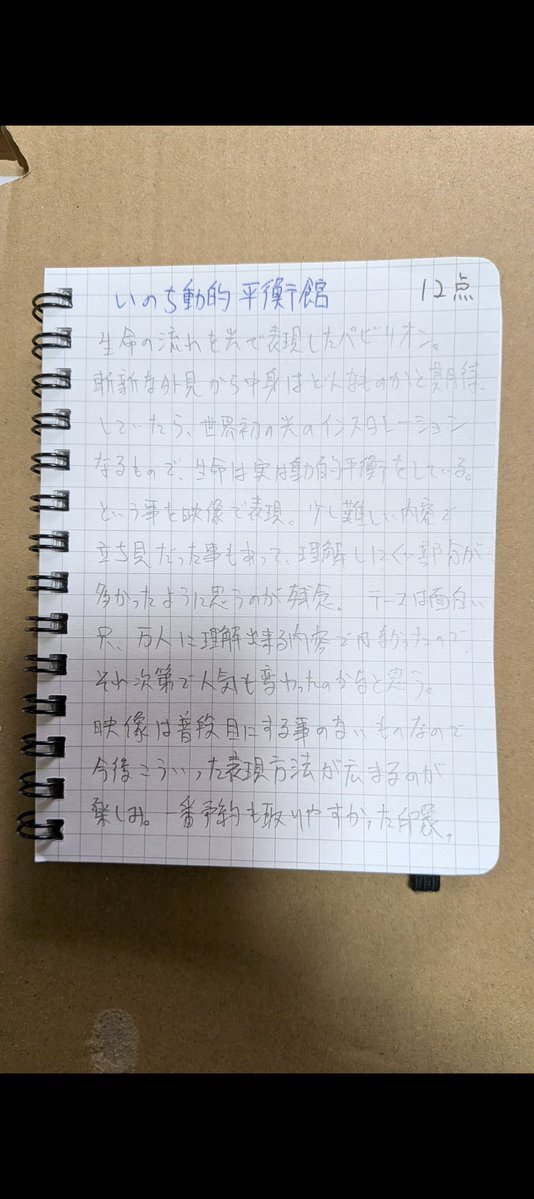 いのち動的平衡館 12点
生命の流れを光で表現したパビリオン。
斬新な外見から中身はどんなものかと期待
していたら、世界初の光のインスタレーション
なるもので、生命は実は動的平衡をしている。
という事を映像で表現。少し難しい内容で
立ち見だった事もあって、理解しにくい部分が
多かったように思うのが残念。テーマは面白い
只、万人に理解出来る内容で日なかったので、
それ次第で人気も変わったのかなと思う。
映像は普段目にする事のないものなので
今後こういった表現方法が広まるのが
楽しみ。一番予約も取りやすかった印象。